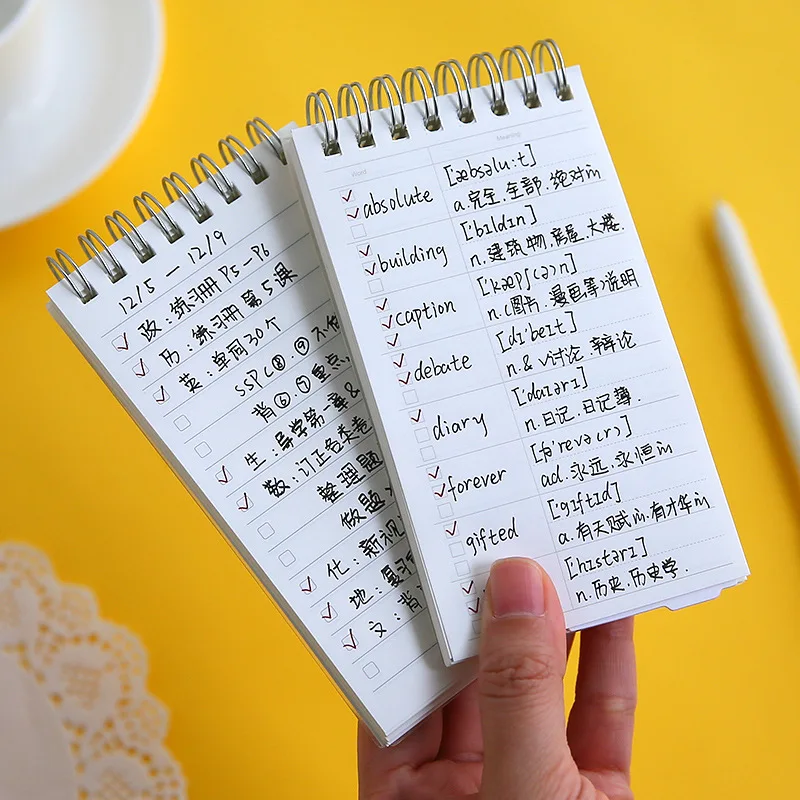 12/5 — 12/9
政：练习册 P5 - P6
历：练习册 第5课
英：单词30个
SSP L② . ⑨ 不
背⑥ . ⑦ 重点,
生：导学第一章&
数：订正各类卷
整理题
做题
化：新视
地：复习
文：背
Word Meaning
absolute [æbsəlu:t]
a.完全.全部.绝对的
building ['bɪldɪn]
n.建筑物.房屋.大楼.
caption ['kæpʃ(ə)n]
n.(图片.漫画等)说明
debate [dɪ'beɪt]
n.& v讨论.辩论
diary ['daɪərɪ]
n.日记.日记簿.
forever [fə'revə(r)]
ad.永远.永恒的
gifted ['gɪftɪd]
a.有天赋的.有才华的
['hɪstərɪ]
n.历史.历史学.